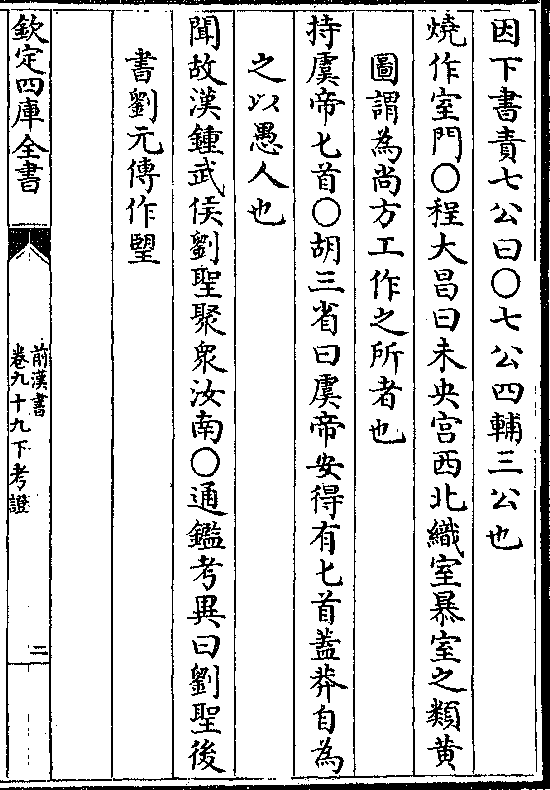 因下書責七公曰○七公四輔三公也
燒作室門○程大昌曰未央宮西北織室暴室之類黃
圖謂為尚方工作之所者也
持虞帝匕首○胡三省曰虞帝安得有匕首蓋莽自為
之以愚人也
聞故漢鍾武侯劉聖聚衆汝南○通鑑考異曰劉聖後
書劉元傳作朢
欽定四庫全書
前漢書
卷九十九下考證
二